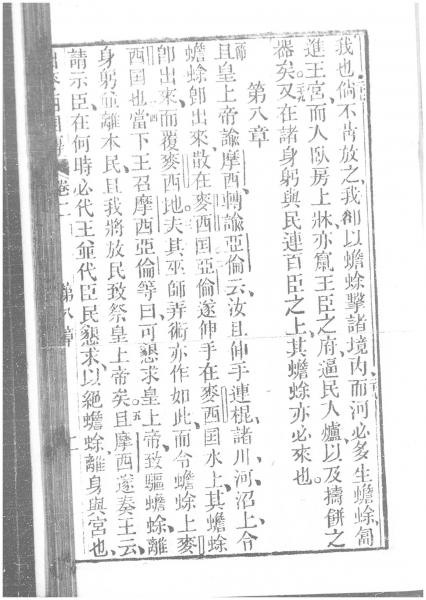 我也倘不肯放之我卽以蟾蜍擊諸境內而河必多生蟾蜍匐
進王宮而人臥房上牀亦竄王臣之府逼民人爐以及擣餅之
器矣又在諸身躬與民連百臣之上其蟾蜍亦必來也
第八章
且皇上帝諭摩西轉諭亞倫云汝且伸手連棍諸川河沼上令
蟾蜍卽出來散在麥西囯亞倫遂伸手在麥西囯水上其蟾蜍
卽出來而覆麥西地夫其巫師弄術亦作如此而令蟾蜍上麥
西囯也當下王召摩西亞倫等曰可懇求皇上帝致驅蟾蜍離
身躬並離本民且我將放民致祭皇上帝矣且摩西遂奏王云
請示臣在何時必代王並代臣民懇求以絕蟾蜍離身與宮也
卷二 第八章